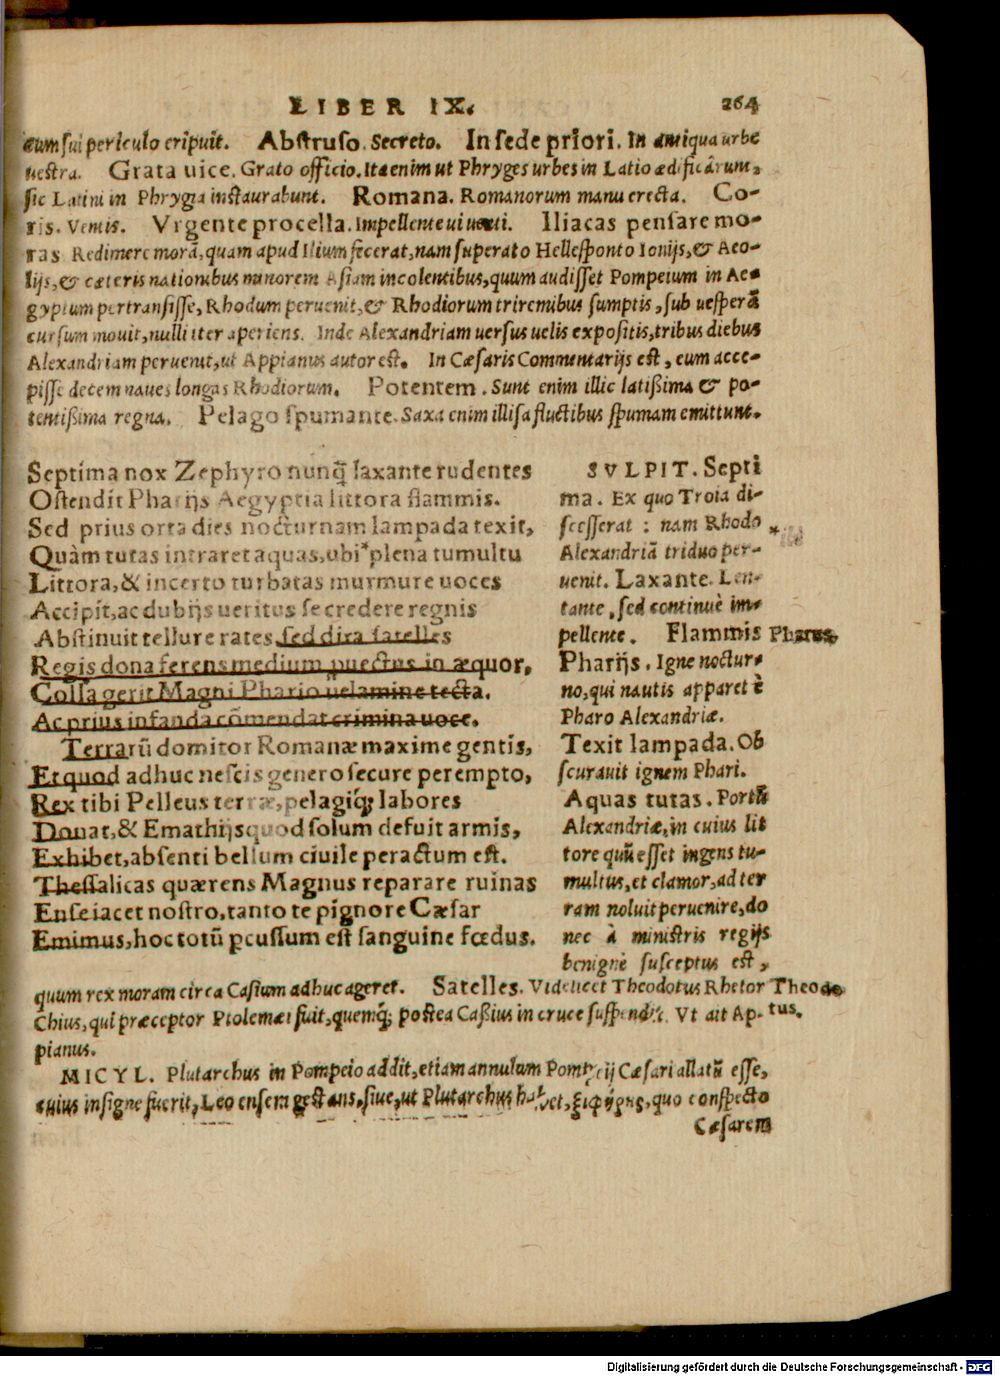 LIBER IX.
264
cum sui periculo eripuit. Abstruso. Secreto. In sede priori. In antiqua urbe
uestra. Grata uice. Grato officio. Ita enim ut Phryges urbes in Latio ædificârunt,
sic Latini in Phrygia instaurabunt. Romana. Romanorum manu erecta. Co-
ris. Ventis. Vrgente procella. Impellente ui uenti. Iliacas pensare mo-
ras Redimere morã, quam apud Ilium fecerat, nam superato Hellesponto Ionijs, & Aeo-
lijs, & cæteris nationibus minorem Asiam incolentibus, quum audisset Pompeium in Ae-
gyptum pertransisse, Rhodum peruenit, & Rhodiorum triremibus sumptis, sub uesperã
cursum mouit, nulli iter aperiens. Inde Alexandriam uersus uelis expositis, tribus diebus
Alexandriam peruenit, ut Appianus autor est. In Cæsaris Commentarijs est, eum acce-
pisse decem naues longas Rhodiorum. Potentem. Sunt enim illic latißima & po-
tentißima regna. Pelago spumante. Saxa enim illisa fluctibus spumam emittunt.
Septima nox Zephyro nunq̃ laxante rudentes
Ostendit Pharijs Aegyptia littora flammis.
Sed prius orta dies nocturnam lampada texit,
Quàm tutas intraret aquas, ubi plena tumultu
Littora, & incerto turbatas murmure uoces
Accipit, ac dubijs ueritus se credere regnis
Abstinuit tellure rates, sed dira satelles
Regis dona ferens medium puectus in æquor,
Colla gerit Magni Phario uelamine tecta.
Ac prius infanda cõmendat crimina uoce.
Terrarũ domitor Romanæ maxime gentis,
Et quod adhuc nescis genero secure perempto,
Rex tibi Pelleus terræ, pelagiq́; labores
Donat, & Emathijs quod solum defuit armis,
Exhibet, absenti bellum ciuile peractum est.
Thessalicas quærens Magnus reparare ruinas
Ense iacet nostro, tanto te pignore Cæsar
Emimus, hoc totũ pcussum est sanguine fœdus.
SVLPIT. Septi
ma. Ex quo Troia di-
scesserat : nam Rhodo
Alexandriã triduo per-
uenit. Laxante. Len-
tante, sed continuè im-
pellente. Flammis
Pharijs. Igne noctur-
no, qui nautis apparet è
Pharo Alexandriæ.
Texit lampada. Ob
scurauit ignem Phari.
Aquas tutas. Portũ
Alexandriæ, in cuius lit
tore quũ esset ingens tu-
multus, et clamor, ad ter
ram noluit peruenire, do
nec à ministris regijs
benignè susceptus est,
*
Pharus
quum rex moram circa Casium adhuc ageret. Satelles. Videlicet Theodotus Rhetor
Chius, qui præceptor Ptolemæi fuit, quemq́; postea Caßius in cruce suspendit. Vt ait Ap-
pianus.
Theodo
tus.
MICYL. Plutarchus in Pompeio addit, etiam annulum Pompeij Cæsari allatũ esse,
cuius insigne fuerit, Leo ensem gestans, siue, ut Plutarchus habet, ξιφήρης, quo conspecto
Cæsarem
Digitalisierung gefördert durch die Deutsche Forschungsgemeinschaft - DFG